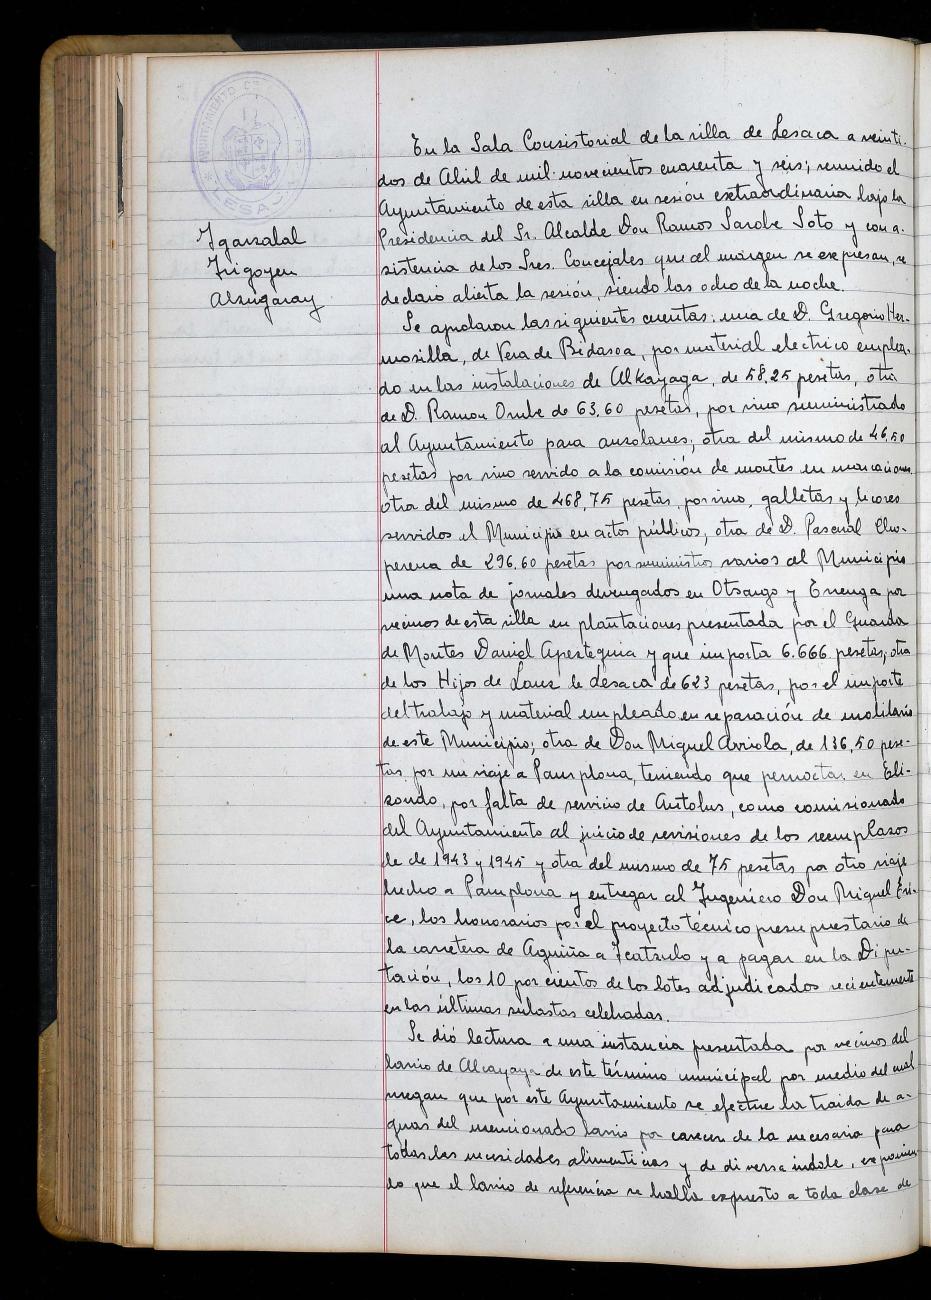 AYUNTAMIENTO DE
LESACA
Igarzabal
Irigoyen
Alzugaray
En la Sala Consistorial de la villa de Lesaca a veinti-
dos de Abril de mil novecientos cuarenta y seis; reunido el
Ayuntamiento de esta villa en sesión extraordinaria bajo la
Presidencia del Sr. Alcalde Don Ramos Sarobe Soto y con a-
sistencia de los Sres. Concejales que al margen se expresan, se
declaró abierta la sesión, siendo las ocho de la noche.
Se aprobaron las siguientes cuentas: una de D. Gregorio Her-
mosilla, de Vera de Bidasoa, por material electrico emplea-
do en las instalaciones de Alkayaga, de 58,25 pesetas, otra
de D. Ramon Oribe de 63,60 pesetas, por vino suministrado
al Ayuntamiento para auzolanes; otra del mismo de 46,50
pesetas por vino servido a la comisión de montes en marcaciones
otra del mismo de 468,75 pesetas, por vino, galletas y licores
servidos al Municipio en actos públicos, otra de D. Pascual Cho-
perena de 296,60 pesetas por suministros varios al Municipio
una nota de jornales devengados en Otsango y Errenga por
vecinos de esta villa en plantaciones presentada por el Guarda
de Montes Daniel Apesteguia y que importa 6.666 pesetas; otra
de los Hijos de Lanz de Lesaca de 623 pesetas, por el importe
del trabajo y material empleado en reparación de mobiliario
de este Municipio; otra de Don Miguel Arriola, de 136,50 pese-
tas, por un viaje a Pamplona, teniendo que pernoctar en Eli-
zondo, por falta de servicio de Autobus, como comisionado
del Ayuntamiento al juicio de revisiones de los reemplazos
de de 1943 y 1945 y otra del mismo de 75 pesetas por otro viaje
hecho a Pamplona y entregar al Ingeniero Don Miguel Eri-
ce, los honorarios por el proyecto técnico presupuestario de
la carretera de Aguiña a y a pagar en la Dipu-
tación, los 10 por cientos de los lotes adjudicados recientemente
en las últimas subastas celebradas.
Se dió lectura a una instancia presentada por vecinos del
barrio de Alcayaga de este término municipal por medio del cual
ruegan que por este Ayuntamiento se efectue la traida de a-
guas del mencionado barrio por carecer de la necesaria para
todas las necesidades alimenticias y de diversa indole, exponien-
do que el barrio de referencia se halla expuesto a toda clase de